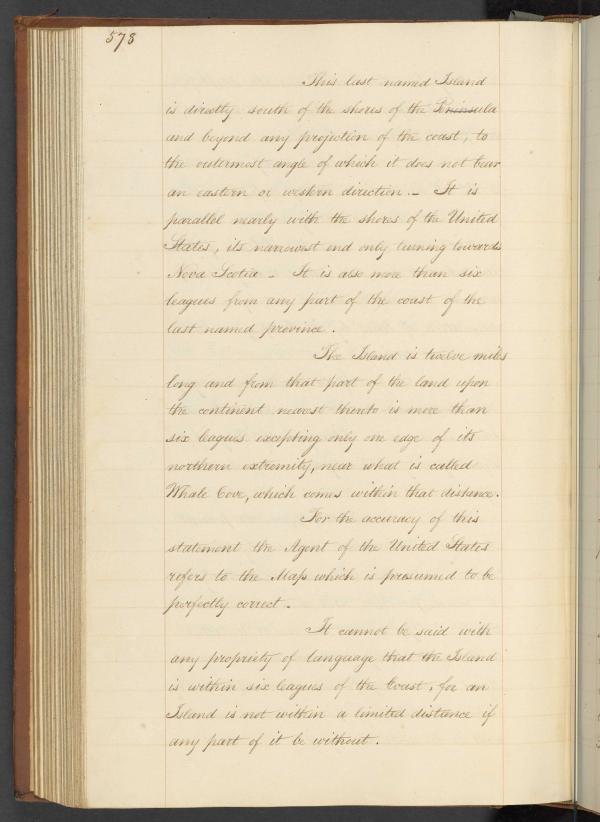 578
This last named Island
is directly south of the shores of the Peninsula
and beyond any projection of the coast, to
the outermost angle of which it does not bear
an eastern or western direction. - It is
parallel nearly with the shores of the United
States, its narrowest end only turning towards
Nova Scotia - It is also more than six
leagues from any part of the coast of the
last named province.
The Island is twelve miles
long and from that part of the land upon
the continent nearest thereto is more than
six leagues excepting only one edge of its
northern extremity, near what is called
Whale Cove, which comes within that distance.
For the accuracy of this
statement the Agent of the United States
refers to the Map which is presumed to be
perfectly correct -
It cannot be said with
any propriety of language that the Island
is within six leagues of the Coast, for an
Island is not within a limited distance if
any part of it be without.